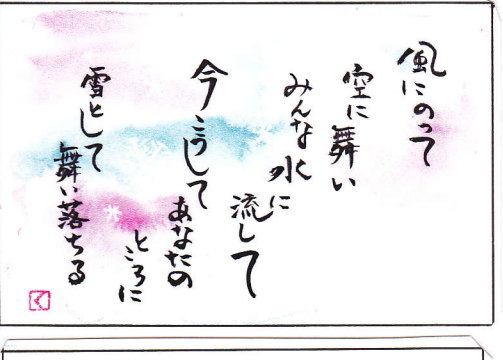 風にのって
空に舞い
みんな水に
流して
今こうして
あなたの
ところに
雪として
舞い落ちる
く